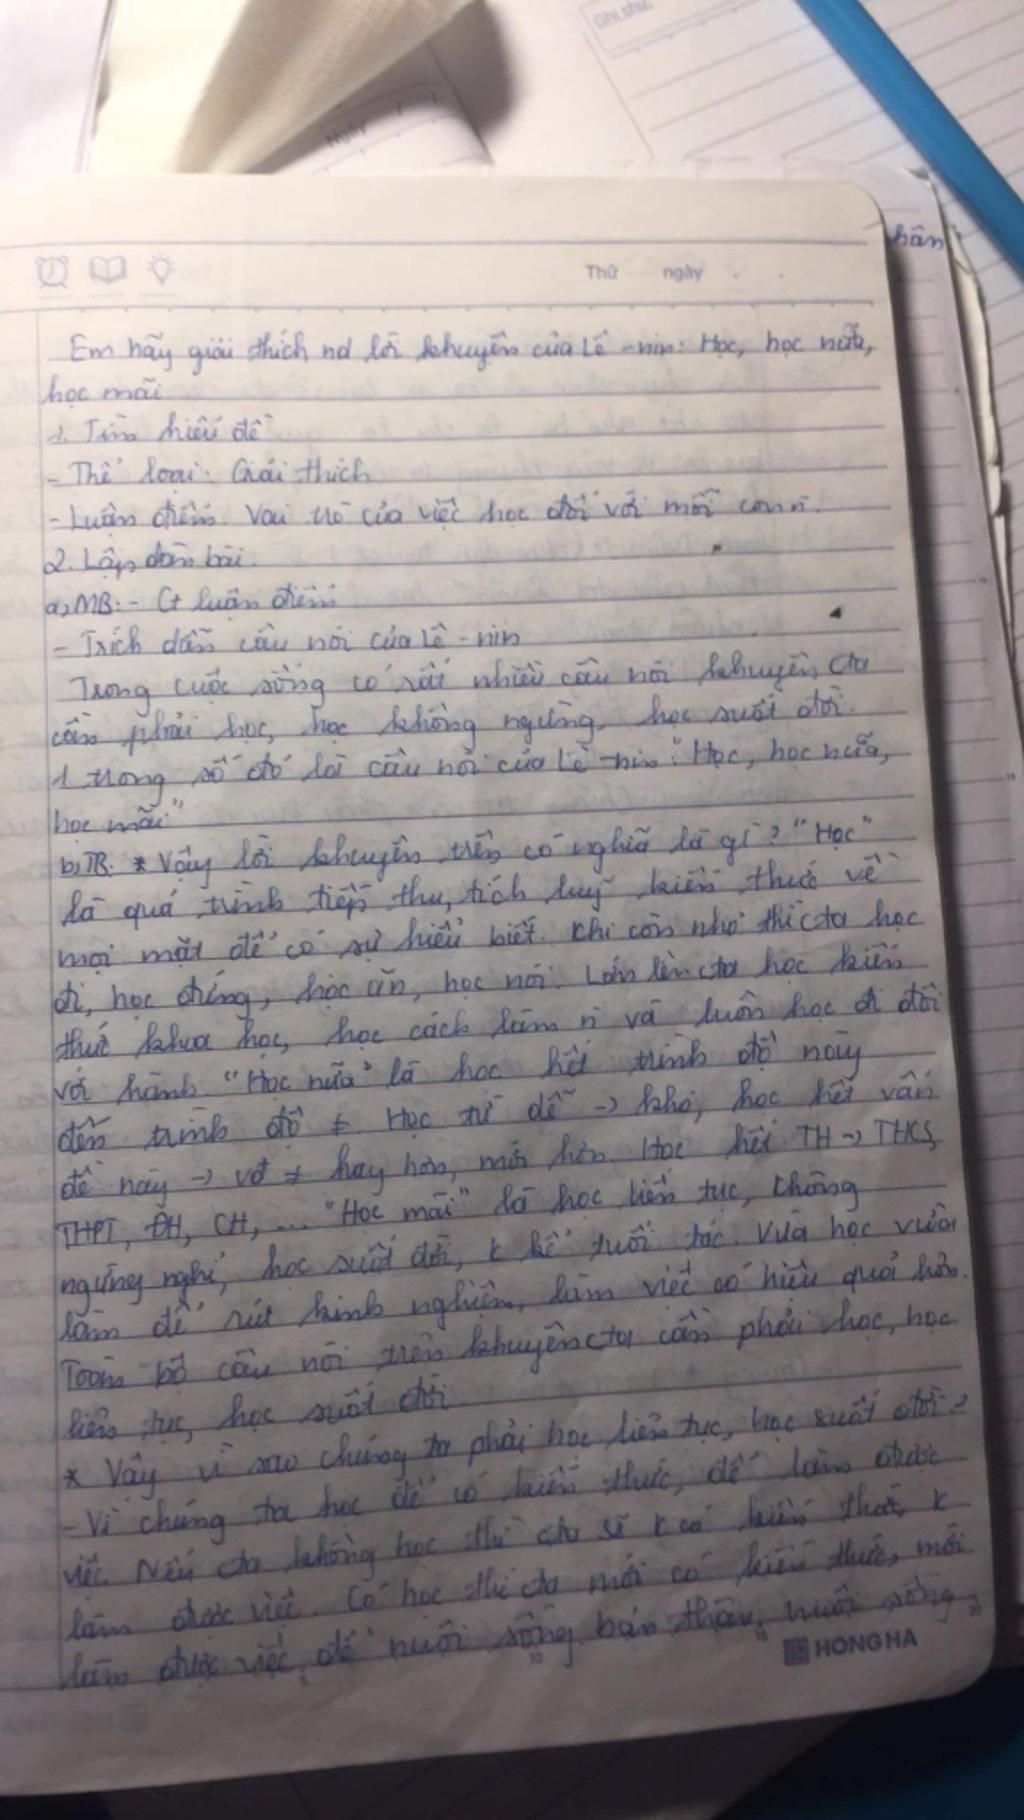 Ghi chú:
Ngày
hân
Thứ ngày
Em hãy giải thích nd lời khuyên của Lê-nin: Học, học nữa,
học mãi
1. Tìm hiểu đề
- Thể loại: Giải thích
- Luận điểm: Vai trò của việc học đối với mỗi con n̄.
2. Lập dàn bài.
a, MB: - Gt luận điểm
- Trích dẫn câu nói của Lê-nin
Trong cuộc sống có rất nhiều câu nói khuyên cta
cần phải học, học không ngừng, học suốt đời.
1 trong số đó là câu nói của Lê-nin: "Học, học nữa,
học mãi"
b, TB: * Vậy lời khuyên trên có nghĩa là gì? "Học"
là quá trình tiếp thu, tích luỹ kiến thức về
mọi mặt để có sự hiểu biết. Khi còn nhỏ thì cta học
đi, học đứng, học ăn, học nói. Lớn lên cta học kiến
thức khoa học, học cách làm n̄ và luôn học đi đôi
với hành. "Học nữa" là học hết trình độ này
đến trình độ ≠ Học từ dễ → khó, học hết vấn
đề này → vđ ≠ hay hơn, mới hơn. Học hết TH → THCS,
THPT, ĐH, CH, ... "Học mãi" là học liên tục, không
ngừng nghỉ, học suốt đời, k kể tuổi tác. Vừa học vừa
làm để rút kinh nghiệm, làm việc có hiệu quả hơn.
Toàn bộ câu nói trên khuyên cta cần phải học, học
liên tục, học suốt đời.
* Vậy vì sao chúng ta phải học liên tục, học suốt đời?
- Vì chúng ta học để có kiến thức, để làm được
việc. Nếu cta không học thì cta sẽ k có kiến thức, k
làm được việc. Có học thì cta mới có kiến thức, mới
làm được việc để nuôi sống bản thân, nuôi sống
HONG HA